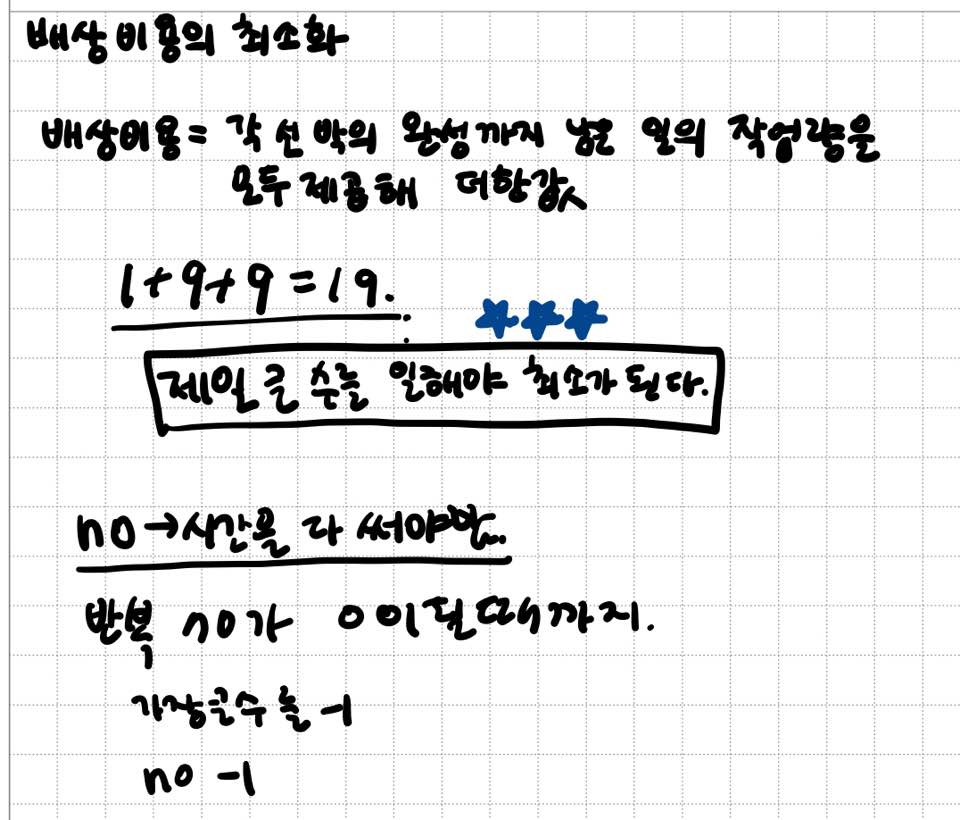 배상 비용의 최소화
배상비용 = 각 선박의 완성까지 남은 일의 작업량을
모두 제곱해 더한값
1+9+9=19.
제일 큰 수를 일해야 최소가 된다.
no→시간을 다 써야만..
반복 no가 0이될때까지.
가장큰수를 -1
no -1